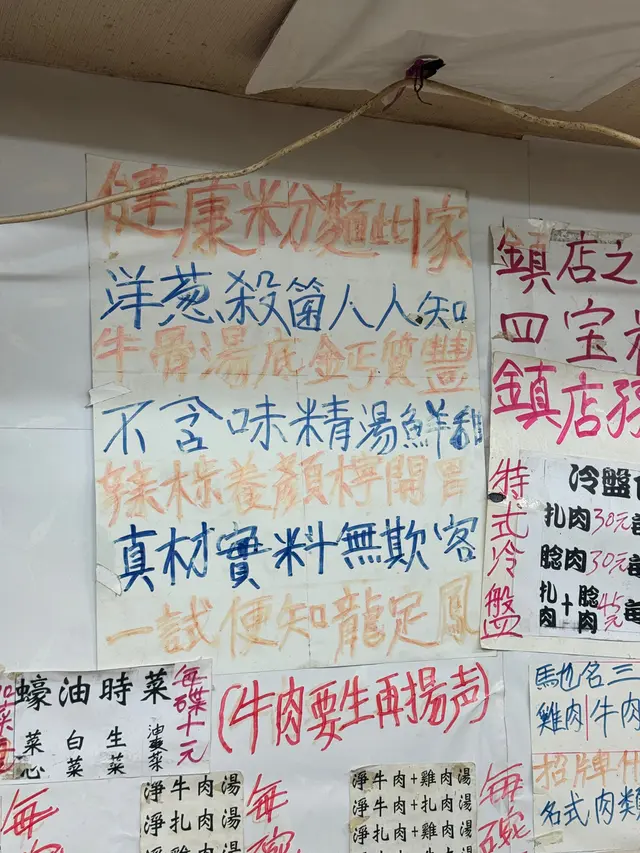 健康粉麵此家
洋葱殺菌人人知
牛骨湯底鈣質豐
不含味精湯鮮和
辣椒養顏檸開胃
真材實料無欺客
一試便知龍足鳳
鎮店之
四宝
鎮店
特式冷盤
冷盤
扎肉30元
腍肉30元
扎肉+腍肉45元
蠔油時菜
菜心 白菜 生菜 油蓮菜
每碟十元
(牛肉要生再揚声)
馬也名三
雞肉 牛肉
招牌什
各式肉類
淨牛肉湯
淨扎肉湯
淨雞肉湯
每碗
淨牛肉+雞肉湯
淨牛肉+扎肉湯
淨扎肉+雞肉湯
每碗
每